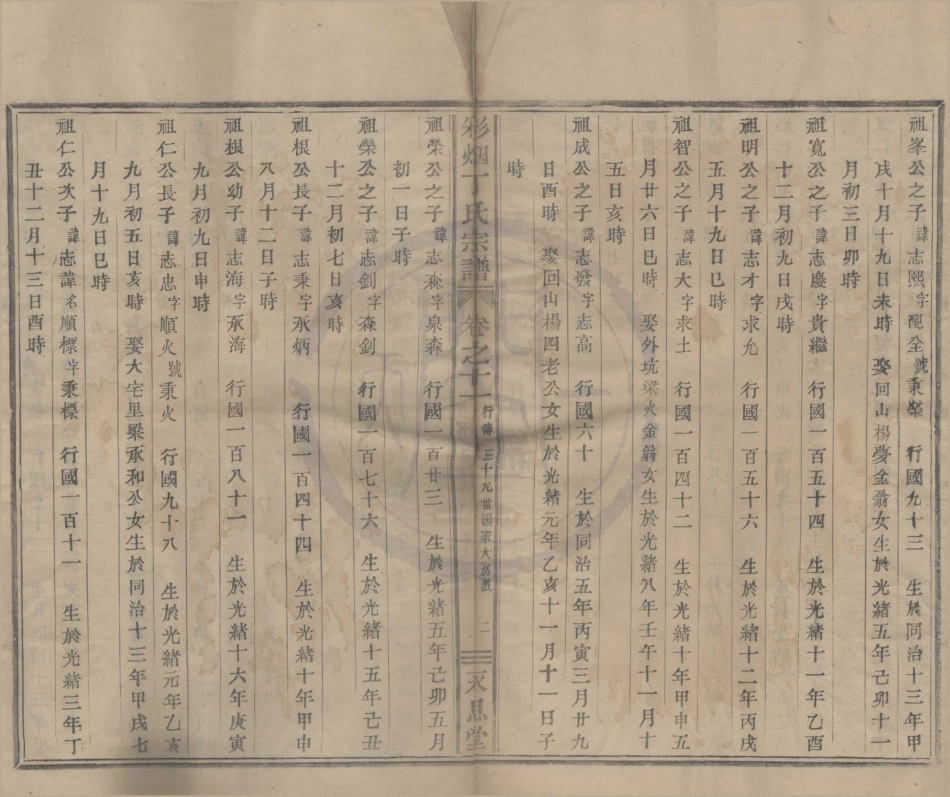 祖峯公之子諱志熙字配全號秉燊　行國九十三　生於同治十三年甲
戌十月十九日未時　娶回山楊夢金翁女生於光緒五年己卯十一
月初三日卯時
祖寬公之子諱志慶字貴繼　行國一百五十四　生於光緒十一年乙酉
十二月初九日戌時
祖明公之子諱志才字求允　行國一百五十六　生於光緒十二年丙戌
五月十九日巳時
祖智公之子諱志大字求土　行國一百四十二　生於光緒十年甲申五
月廿六日巳時　娶外坑梁火金翁女生於光緒八年壬午十一月十
五日亥時
祖成公之子諱志發字志高　行國六十　生於同治五年丙寅三月廿九
日酉時　娶回山楊四老公女生於光緒元年乙亥十一月十一日子
時
彩烟丁氏宗譜　卷之十一　行傳　三十九世　大房派　二　永思堂
祖榮公之子諱志森字泉森　行國一百廿三　生於光緒五年己卯五月
初一日子時
祖榮公之子諱志釗字森釗　行國一百七十六　生於光緒十五年己丑
十二月初七日亥時
祖根公長子諱志秉字承炳　行國一百四十四　生於光緒十年甲申
八月十二日子時
祖根公幼子諱志海字承海　行國一百八十一　生於光緒十六年庚寅
九月初九日申時
祖仁公長子諱志忠字順火號秉火　行國九十八　生於光緒元年乙亥
九月初五日亥時　娶大宅里梁承和公女生於同治十三年甲戌七
月十九日巳時
祖仁公次子諱志諱名順標字秉標　行國一百十一　生於光緒三年丁
丑十二月十三日酉時